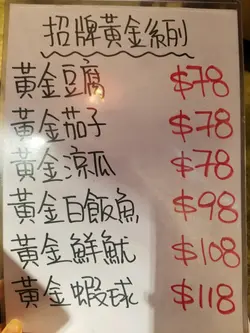 招牌黃金系列
黃金豆腐 $78
黃金茄子 $78
黃金涼瓜 $78
黃金白飯魚 $98
黃金鮮魷 $108
黃金蝦球 $118